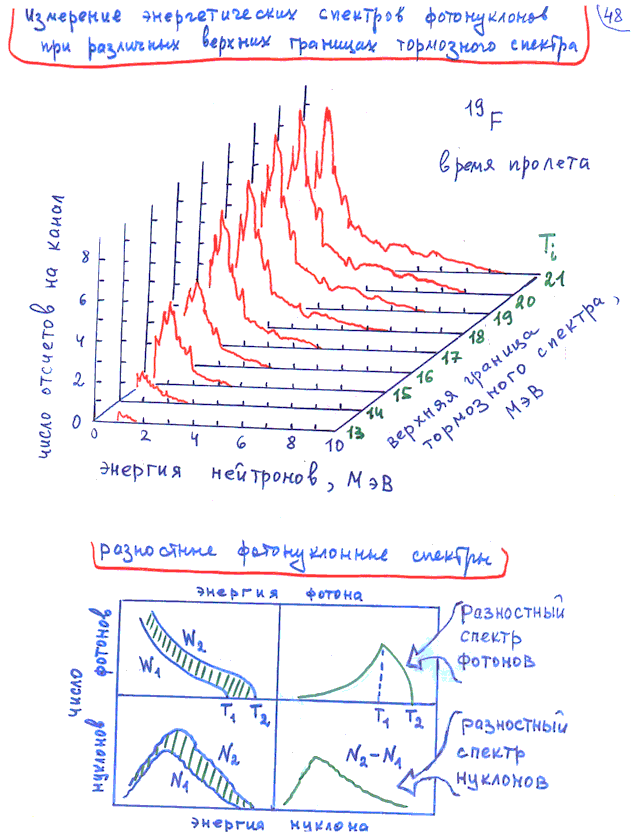 измерение энергетических спектров фотонуклонов
при различных верхних границах тормозного спектра
48
19F
время пролета
число отсчетов на канал
8
6
4
2
0
0 2 4 6 8 10
энергия нейтронов, МэВ
Ti
21
20
19
18
17
16
15
14
13
верхняя граница
тормозного спектра,
МэВ
разностные фотонуклонные спектры
энергия фотона
число
фотонов
нуклонов
W2
W1
T1 T2
T1 T2
разностный
спектр
фотонов
N2
N1
N2-N1
разностный
спектр
нуклонов
энергия нуклона